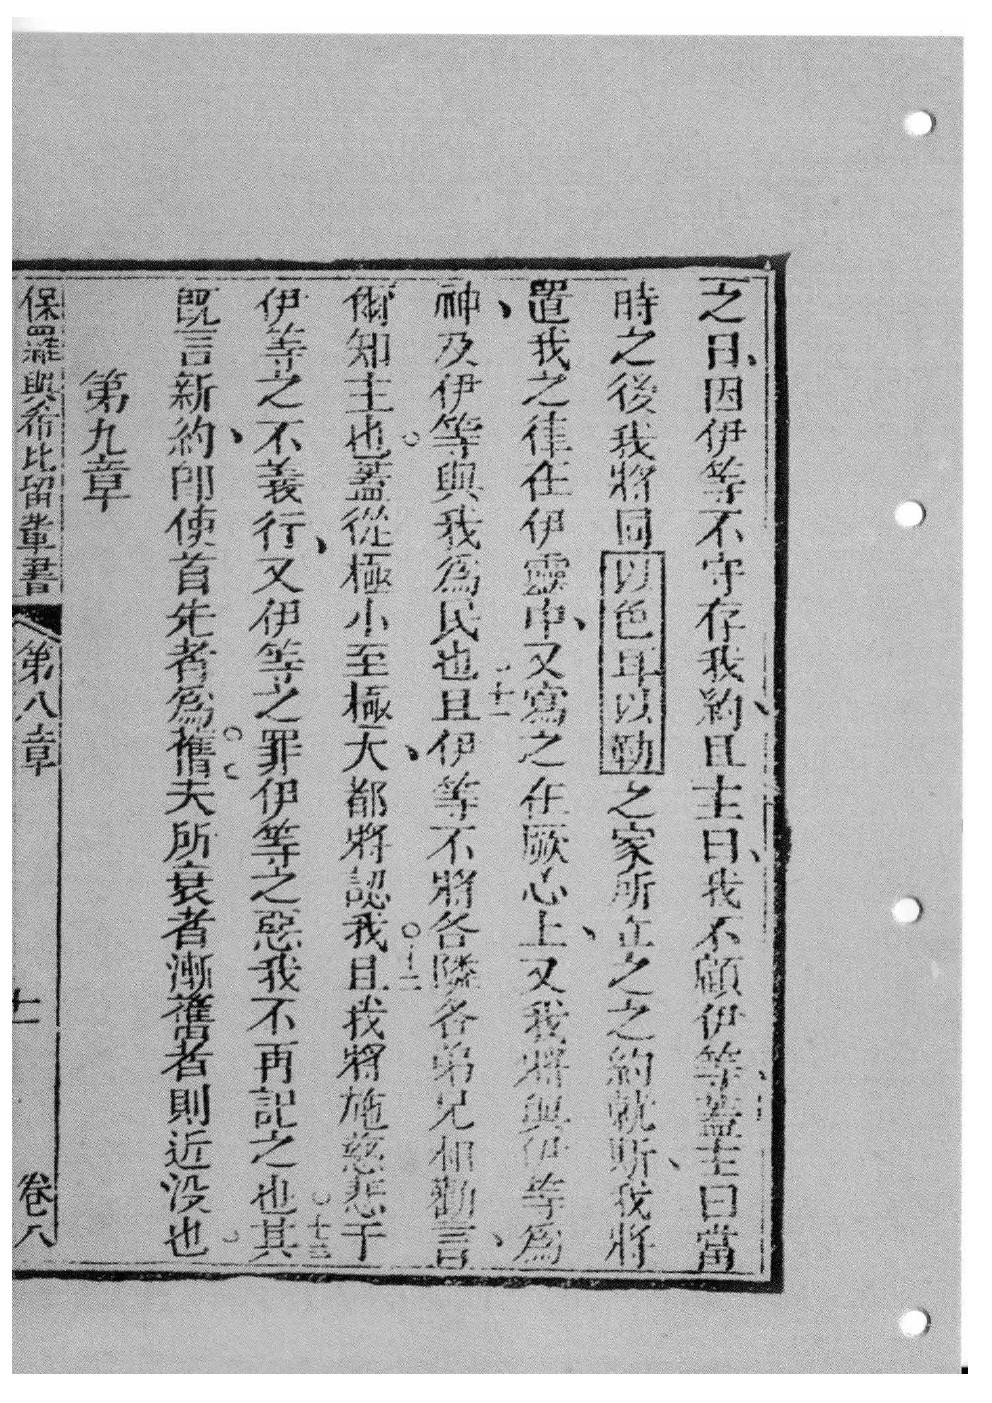 之日、因伊等不守存我約、且主曰、我不顧伊等、蓋主曰當
時之後我將同以色耳以勒之家所立之之約就斯、我將
置我之律在伊靈中、又寫之在厥心上、又我將與伊等為
神、及伊等與我為民也十一且伊等不將各隣各弟兄相勸言、
爾知主也。蓋從極小至極大、都將認我。十二且我將施慈悲于
伊等之不義行、又伊等之罪伊等之惡我不再記之也。十三其
既言新約、即使首先者為舊。夫所衰者漸舊者則近没也。
第九章
保羅與希比留輩書 第八章 十一 卷八